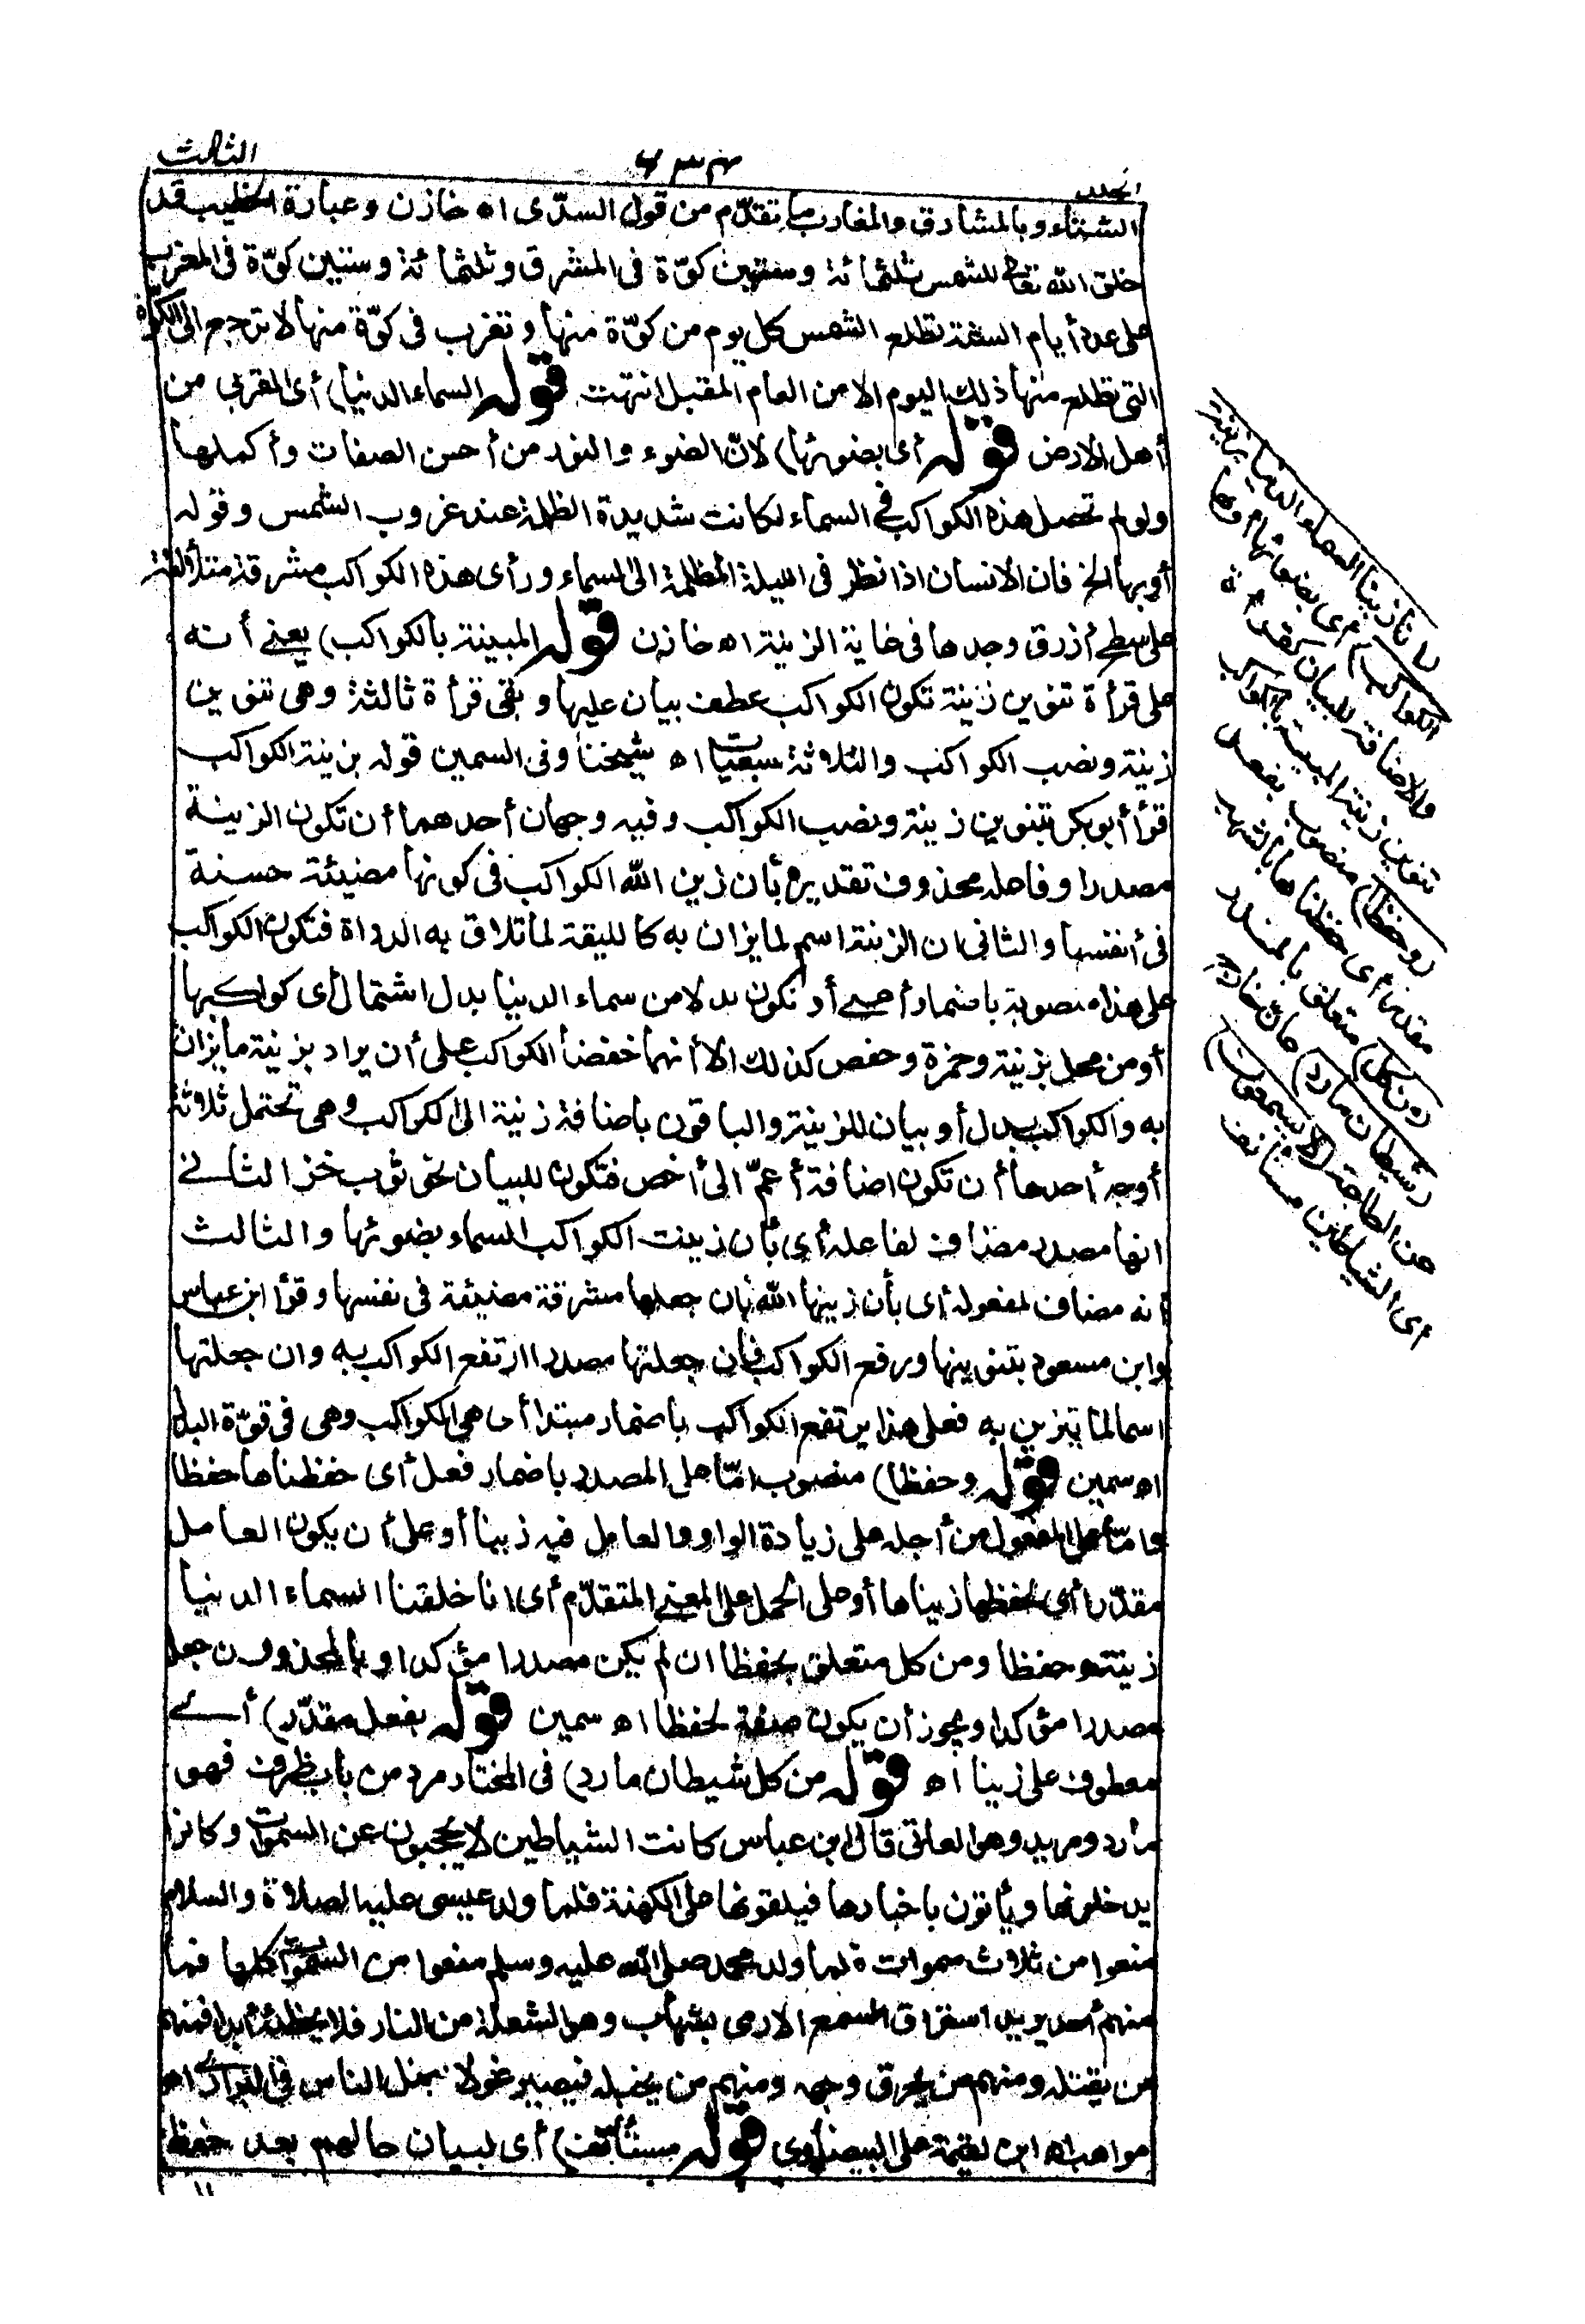 الجلد
٦٣٤
الثالث
الشتاء وبالمشارق والمغارب ما تقدّم من قول السدّى اه خازن وعبارة الخطيب قد
خلق الله تعالى للشمس ثلثمائة وستين كوّة فى المشرق وثلثمائة وستين كوّة فى المغرب
على عدد أيام السنة تطلع الشمس كل يوم من كوّة منها وتغرب فى كوّة منها لا ترجع الى الكوّة
التى تطلع منها ذلك اليوم الا من العام المقبل انتهت قوله السماء الدنيا) أى القربى من
أهل الارض قوله أى بضوئها) لانّ الضوء والنور من أحسن الصفات وأكملها
ولو لم تحصل هذه الكواكب فى السماء لكانت شديدة الظلمة عند غروب الشمس وقوله
أو بها الخ فان الانسان اذا نظر فى الليلة المظلمة الى السماء ورأى هذه الكواكب مشرقة متلألئة
على سطح أزرق وجدها فى غاية الزينة اه خازن قوله المبينة بالكواكب) يعنى أنه
على قرأة تنوين زينة تكون الكواكب عطف بيان عليها وبقى قرأة ثالثة وهى تنوين
زينة ونصب الكواكب والثلاثة سبعيات اه شيخنا وفى السمين قوله بزينة الكواكب
قرأ أبو بكر بتنوين زينة ونصب الكواكب وفيه وجهان أحدهما أن تكون الزينة
مصدرا وفاعله محذوف تقديره بأن زين الله الكواكب فى كونها مضيئة حسنة
فى أنفسها والثانى ان الزينة اسم لما يزان به كالليقة لما تلاق به الدواة فتكون الكواكب
على هذا منصوبة باضمار أعنى أو تكون بدلا من سماء الدنيا بدل اشتمال أى كواكبها
أو من محل بزينة وحمزة وحفص كذلك الا أنهما خفضا الكواكب على أن يراد بزينة ما يزان
به والكواكب بدل أو بيان للزينة والباقون باضافة زينة الى الكواكب وهى تحتمل ثلاثة
أوجه أحدها أن تكون اضافة أعمّ الى أخص فتكون للبيان نحو ثوب خز الثانى
انها مصدر مضاف لفاعله أى بأن زينت الكواكب السماء بضوئها والثالث
أنه مضاف لمفعوله أى بأن زينها الله بان جعلها مشرقة مضيئة فى نفسها وقرأ ابن عباس
وابن مسعود بتنوينها ورفع الكواكب فان جعلتها مصدرا ارتفع الكواكب به وان جعلتها
اسما لما يتزين به فعلى هذا يرتفع الكواكب باضمار مبتدا أى هى الكواكب وهى فى قوّة البدل
اه سمين قوله وحفظا) منصوب امّا على المصدر باضمار فعل أى حفظناها حفظا
وامّا على المفعول من أجله على زيادة الواو والعامل فيه زينا أو على أن يكون العامل
مقدّرا أى لحفظها زيناها أو على الحمل على المعنى المتقدّم أى انا خلقنا السماء الدنيا
زينة وحفظا ومن كل متعلق بحفظا ان لم يكن مصدرا مؤكدا وبالمحذوف ان جعل
مصدرا مؤكدا ويجوز أن يكون صفة لحفظا اه سمين قوله بفعل مقدّر) أى
معطوف على زينا اه قوله من كل شيطان مارد) فى المختار مرد من باب ظرف فهو
مارد ومريد وهو العاتى قال ابن عباس كانت الشياطين لا يحجبون عن السموات وكانوا
يدخلونها ويأتون باخبارها فيلقونها على الكهنة فلما ولد عيسى عليه الصلاة والسلام
منعوا من ثلاث سموات فلما ولد محمد صلى الله عليه وسلم منعوا من السموات كلها فما
منهم أحد يريد استراق السمع الا رمى بشهاب وهو الشعلة من النار فلا يخطئه أبدا فمنهم
من يقتله ومنهم من يحرق وجهه ومنهم من يخبله فيصير غولا يضل الناس فى البرارى اه
مواهب اه ابن لقيمة على البيضاوى قوله مستأنف) أى لبيان حالهم بعد حفظ
(انا زينا السماء الدنيا بزينة
الكواكب) أى بضوئها أو بها
والاضافة للبيان كقراءة
تنوين زينة المبينة بالكواكب
(وحفظا) منصوب بفعل
مقدر أى حفظناها بالشهب
(من كل) متعلق بالمقدر
(شيطان مارد) عات خارج
عن الطاعة (لا يسمعون)
أى الشياطين مستأنف